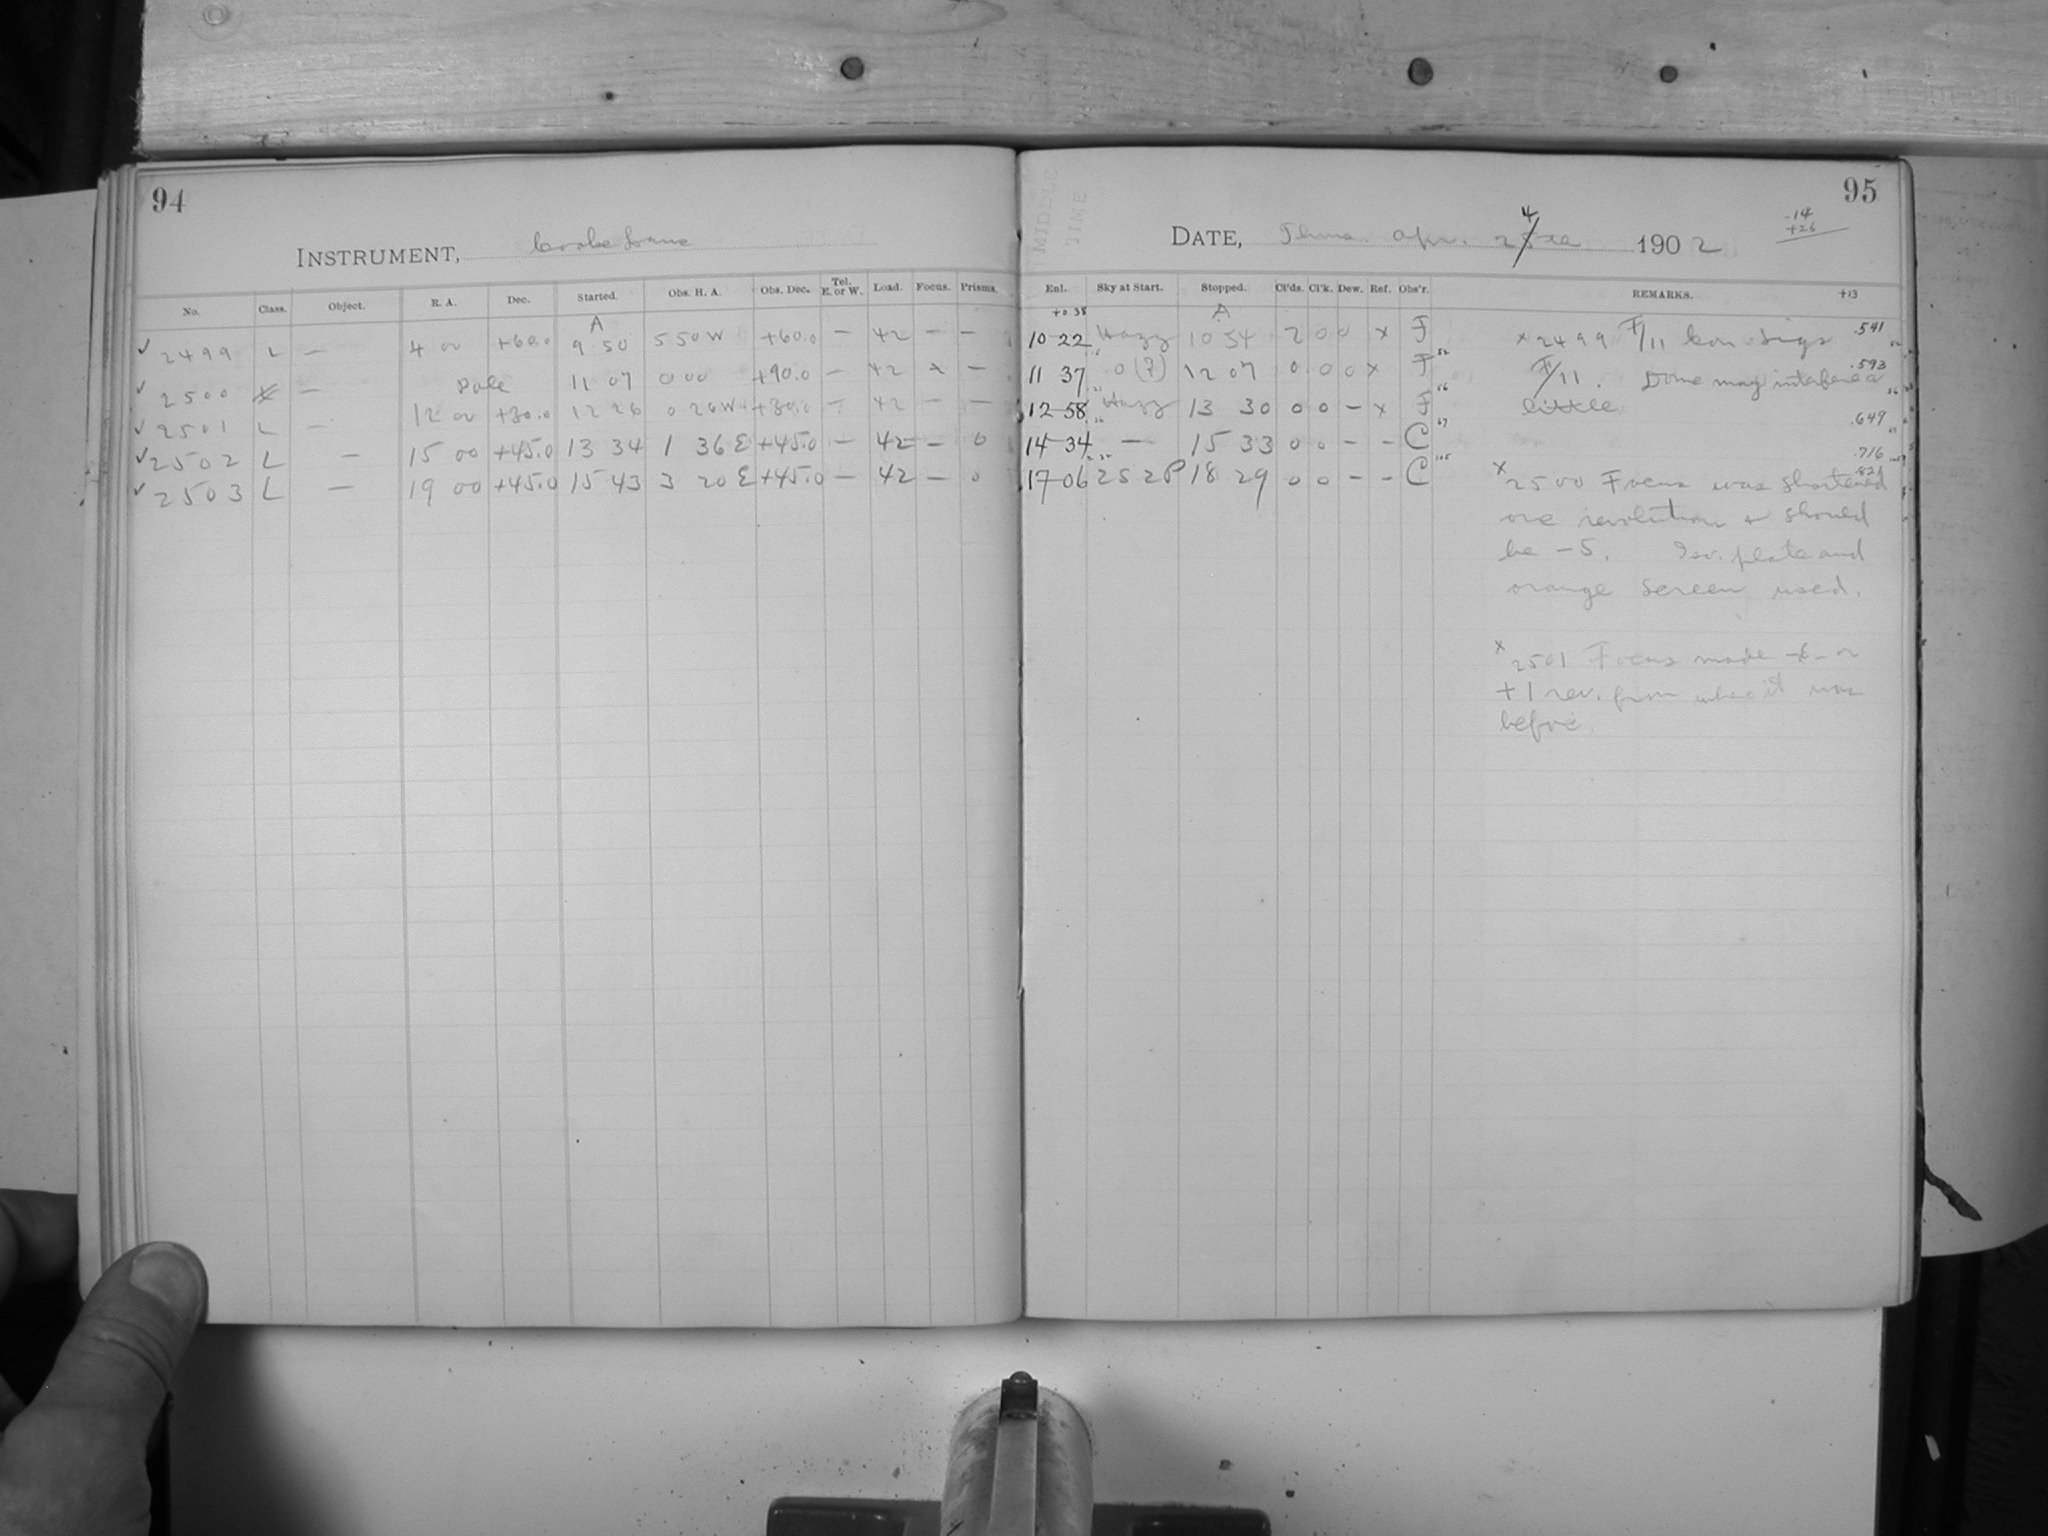 94
INSTRUMENT, Cooke Lens
No. Class. Object. R. A. Dec. Started. Obs. H. A. Obs. Dec. Tel. E. or W. Load. Focus. Prisms.
A
✓ 2499 L — 4 00 +60.0 9 50 5 50 W +60.0 — 42 — —
✓ 2500 — Pole 11 07 0 00 +90.0 — 42 x —
✓ 2501 L — 12 00 +30.0 12 26 0 26 W +30.0 — 42 — —
✓ 2502 L — 15 00 +45.0 13 34 1 36 E +45.0 — 42 — 0
✓ 2503 L — 19 00 +45.0 15 43 3 20 E +45.0 — 42 — 0
95
MIDDLE
TIME
DATE, Thurs. Apr. 24 1902
-14
+26
Enl. Sky at Start. Stopped. Cl'ds. Cl'k. Dew. Ref. Obs'r. REMARKS. +13
+0 38 A
10 22 Hazy 10 54 2 0 0 x F
11 37 0 (?) 12 07 0 0 0 x F 52
12 58 Hazy 13 30 0 0 — x F 56
14 34 — 15 33 0 0 — — C 67
17 06 2S 2P 18 29 0 0 — — C 105
x 2499 F/11 .541
F/11. Dome may interfere a .593
little
.649
.716
.821
x 2500 Focus was shortened
one revolution & should
be -5. Iso. plate and
orange screen used.
x 2501 Focus made -6 or
+1 rev. from where it was
before.